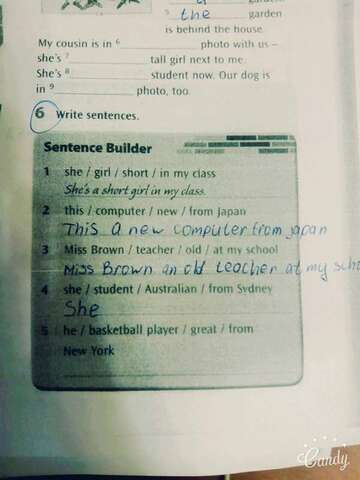 5 the garden
is behind the house
My cousin is in 6 photo with us –
she's 7 tall girl next to me.
She's 8 student now. Our dog is
in 9 photo, too.
6 Write sentences.
Sentence Builder
1 she / girl / short / in my class
She's a short girl in my class.
2 this / computer / new / from Japan
This a new computer from Japan
3 Miss Brown / teacher / old / at my school
Miss Brown an old teacher at my scho
4 she / student / Australian / from Sydney
She
5 he / basketball player / great / from
New York
Candy